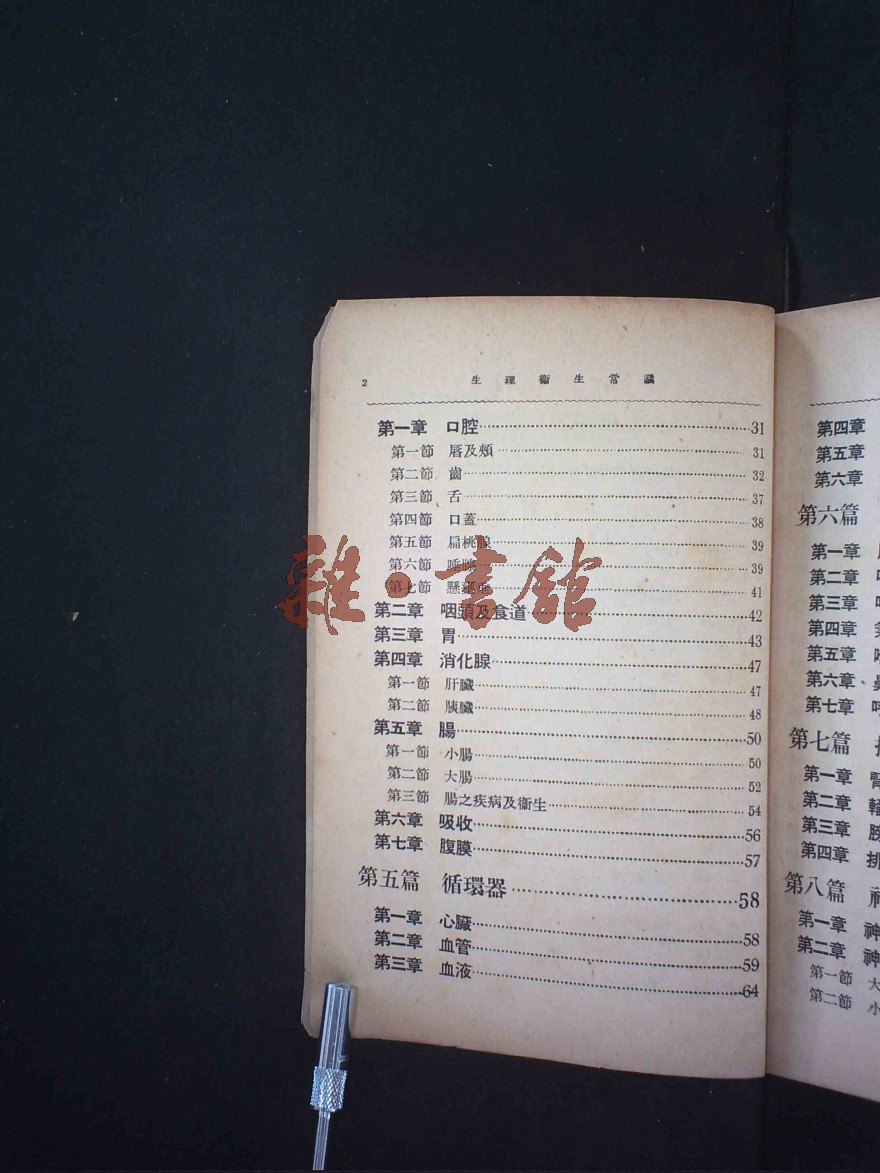 2 生理衞生常識
第一章 口腔 31
第一節 唇及頰 31
第二節 齒 32
第三節 舌 37
第四節 口蓋 38
第五節 扁桃腺 39
第六節 39
第七節 懸雍垂 41
第二章 咽頭及食道 42
第三章 胃 43
第四章 消化腺 47
第一節 肝臟 47
第二節 胰臟 48
第五章 腸 50
第一節 小腸 50
第二節 大腸 52
第三節 腸之疾病及衞生 54
第六章 吸收 56
第七章 腹膜 57
第五篇 循環器 58
第一章 心臟 58
第二章 血管 59
第三章 血液 64
雜·書館
第四章
第五章
第六章
第六篇
第一章
第二章
第三章
第四章
第五章
第六章
第七章
第七篇
第一章 腎
第二章
第三章 膀
第四章 排
第八篇 神
第一章 神
第二章 神
第一節 大
第二節 小